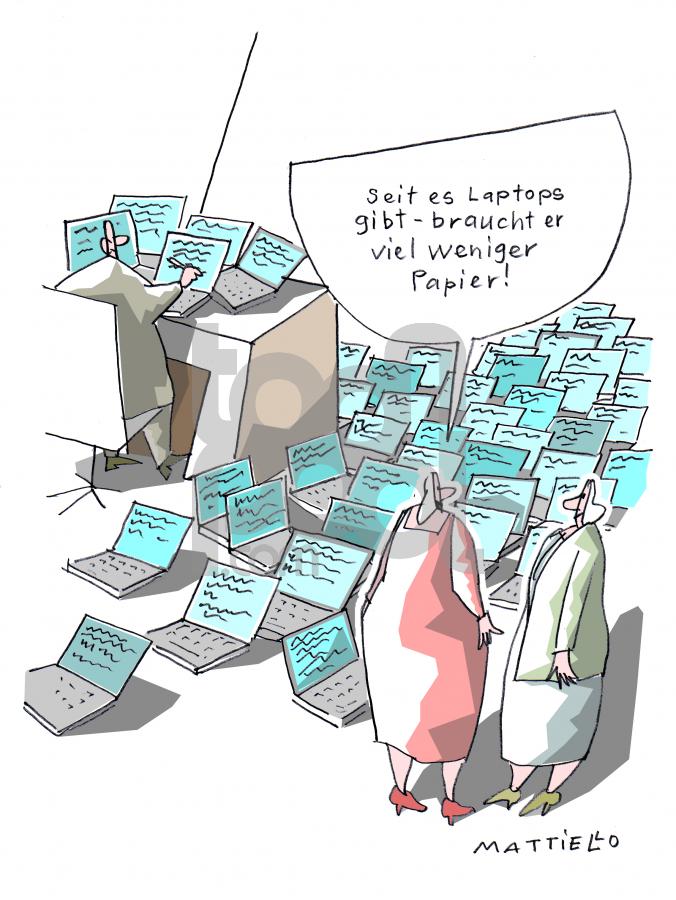 Seit es Laptops
gibt - braucht er
viel weniger
Papier!
toos
.com
MATTIELLO